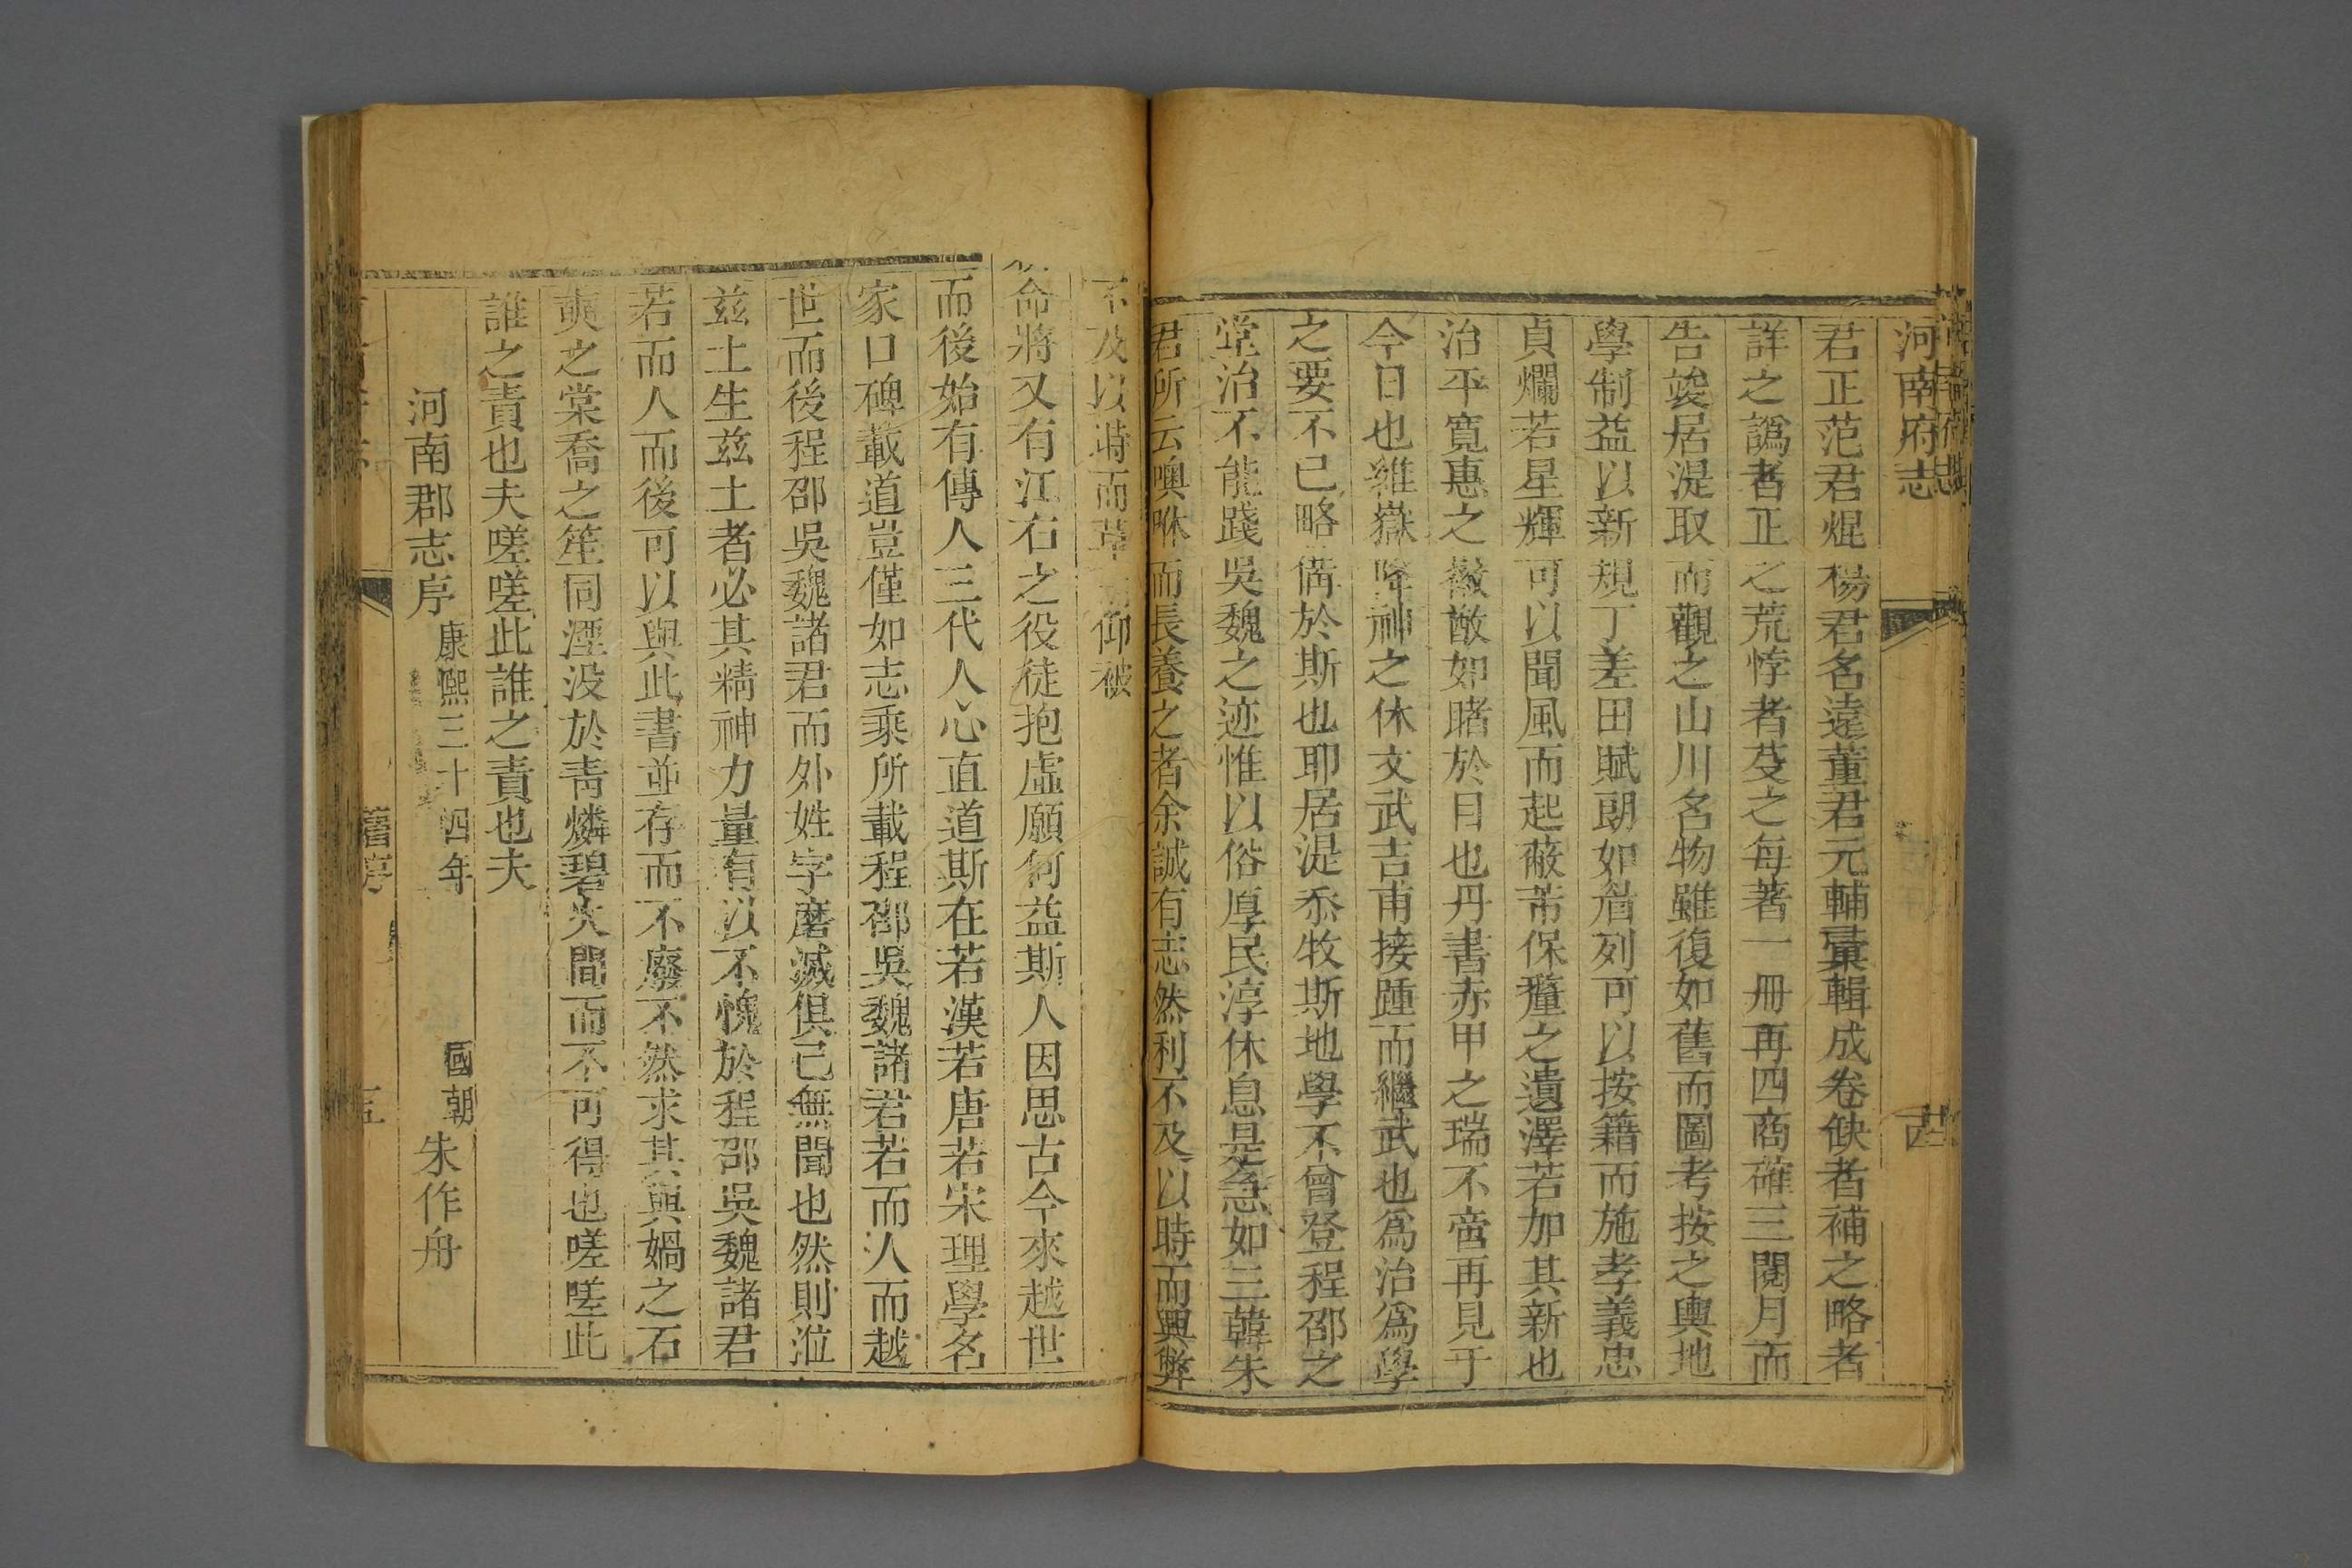 河南府志
君正范君焜楊君名遠董君元輔彚輯成卷缺者補之略者
詳之譌者正之荒悖者芟之每著一冊再四商確三閱月而
告竣居湜取而觀之山川名物雖復如舊而圖考按之輿地
學制益以新規丁差田賦朗如眉列可以按籍而施孝義忠
貞爛若星輝可以聞風而起蔽芾保釐之遺澤若加其新也
治平寬惠之徽猷如睹於目也丹書赤甲之瑞不啻再見于
今日也維嶽降神之休文武吉甫接踵而繼武也為治為學
之要不已略備於斯也耶居湜忝牧斯地學不曾登程邵之
堂治不能踐吳魏之迹惟以俗厚民淳休息是急如三韓朱
君所云噢咻而長養之者余誠有志然利不及以時而興弊
不及以時而革仰被
命將又有江右之役徒抱虛願何益斯人因思古今來越世
而後始有傳人三代人心直道斯在若漢若唐若宋理學名
家口碑載道豈僅如志乘所載程邵吳魏諸君若而人而越
世而後程邵吳魏諸君而外姓字磨滅俱已無聞也然則涖
兹土生兹土者必其精神力量有以不愧於程邵吳魏諸君
若而人而後可以與此書並存而不廢不然求其與媧之石
奭之棠喬之笙同湮没於靑燐碧火間而不可得也嗟嗟此
誰之責也夫嗟嗟此誰之責也夫
河南郡志序 康熙三十四年 國朝朱作舟
舊序